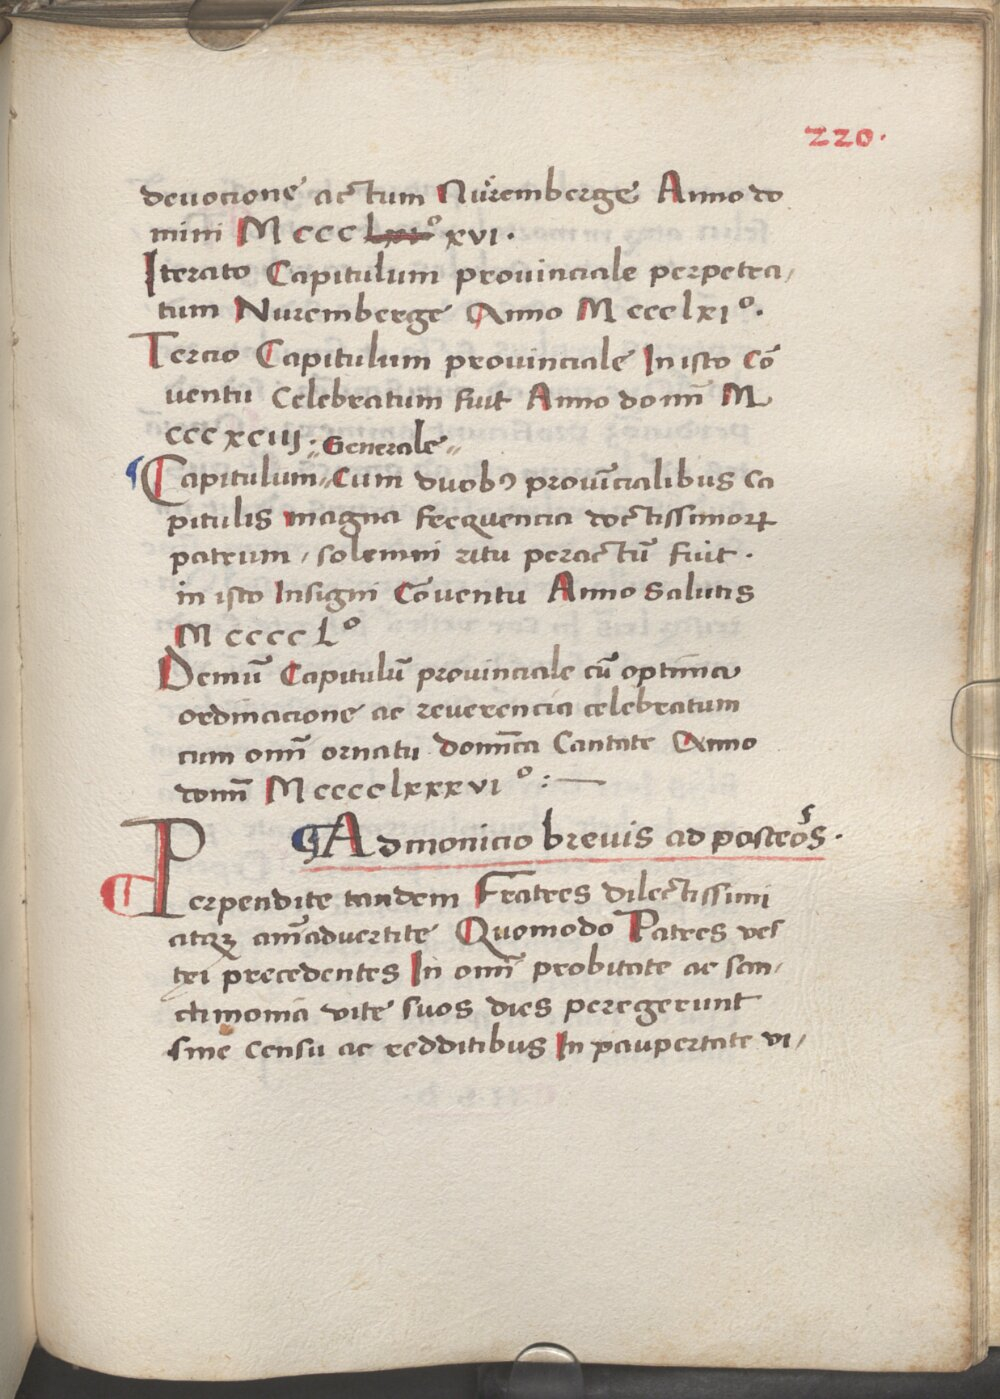 220.
deuocione actum Nuͤremberge Anno do
mini M ccc lxvͦ xvi.
Iterato Capitulum prouinciale perpetra,
tum Nuremberge Anno M ccclxiº.
Tercio Capitulum prouinciale In isto Cō
uentu Celebratum fuit Anno domī M
ccc xciij: Generale〃
Capitulum〃 Cum duobꝰ prouīcialibus Ca
pitulis magna frequencia doctissimorꝝ
patrum, solemni ritu peractū fuit.
in isto Insigni Cōuentu Anno Salutis
M cccc Lº
Demū Capitulū prouinciale cū optima
ordinacione ac reuerencia celebratum
cum omī ornatu domīca Cantate Anno
domī M cccclxxxviº :—
¶ Admonicio breuis ad posterōs.
Perpendite tandem Fratres dilectissimi
atqꝫ amāduertite Quomodo Patres ves
tri precedentes In omī probitate ac san,
ctimonia vite suos dies peregerunt
sine censu ac redditibus In paupertate vi,